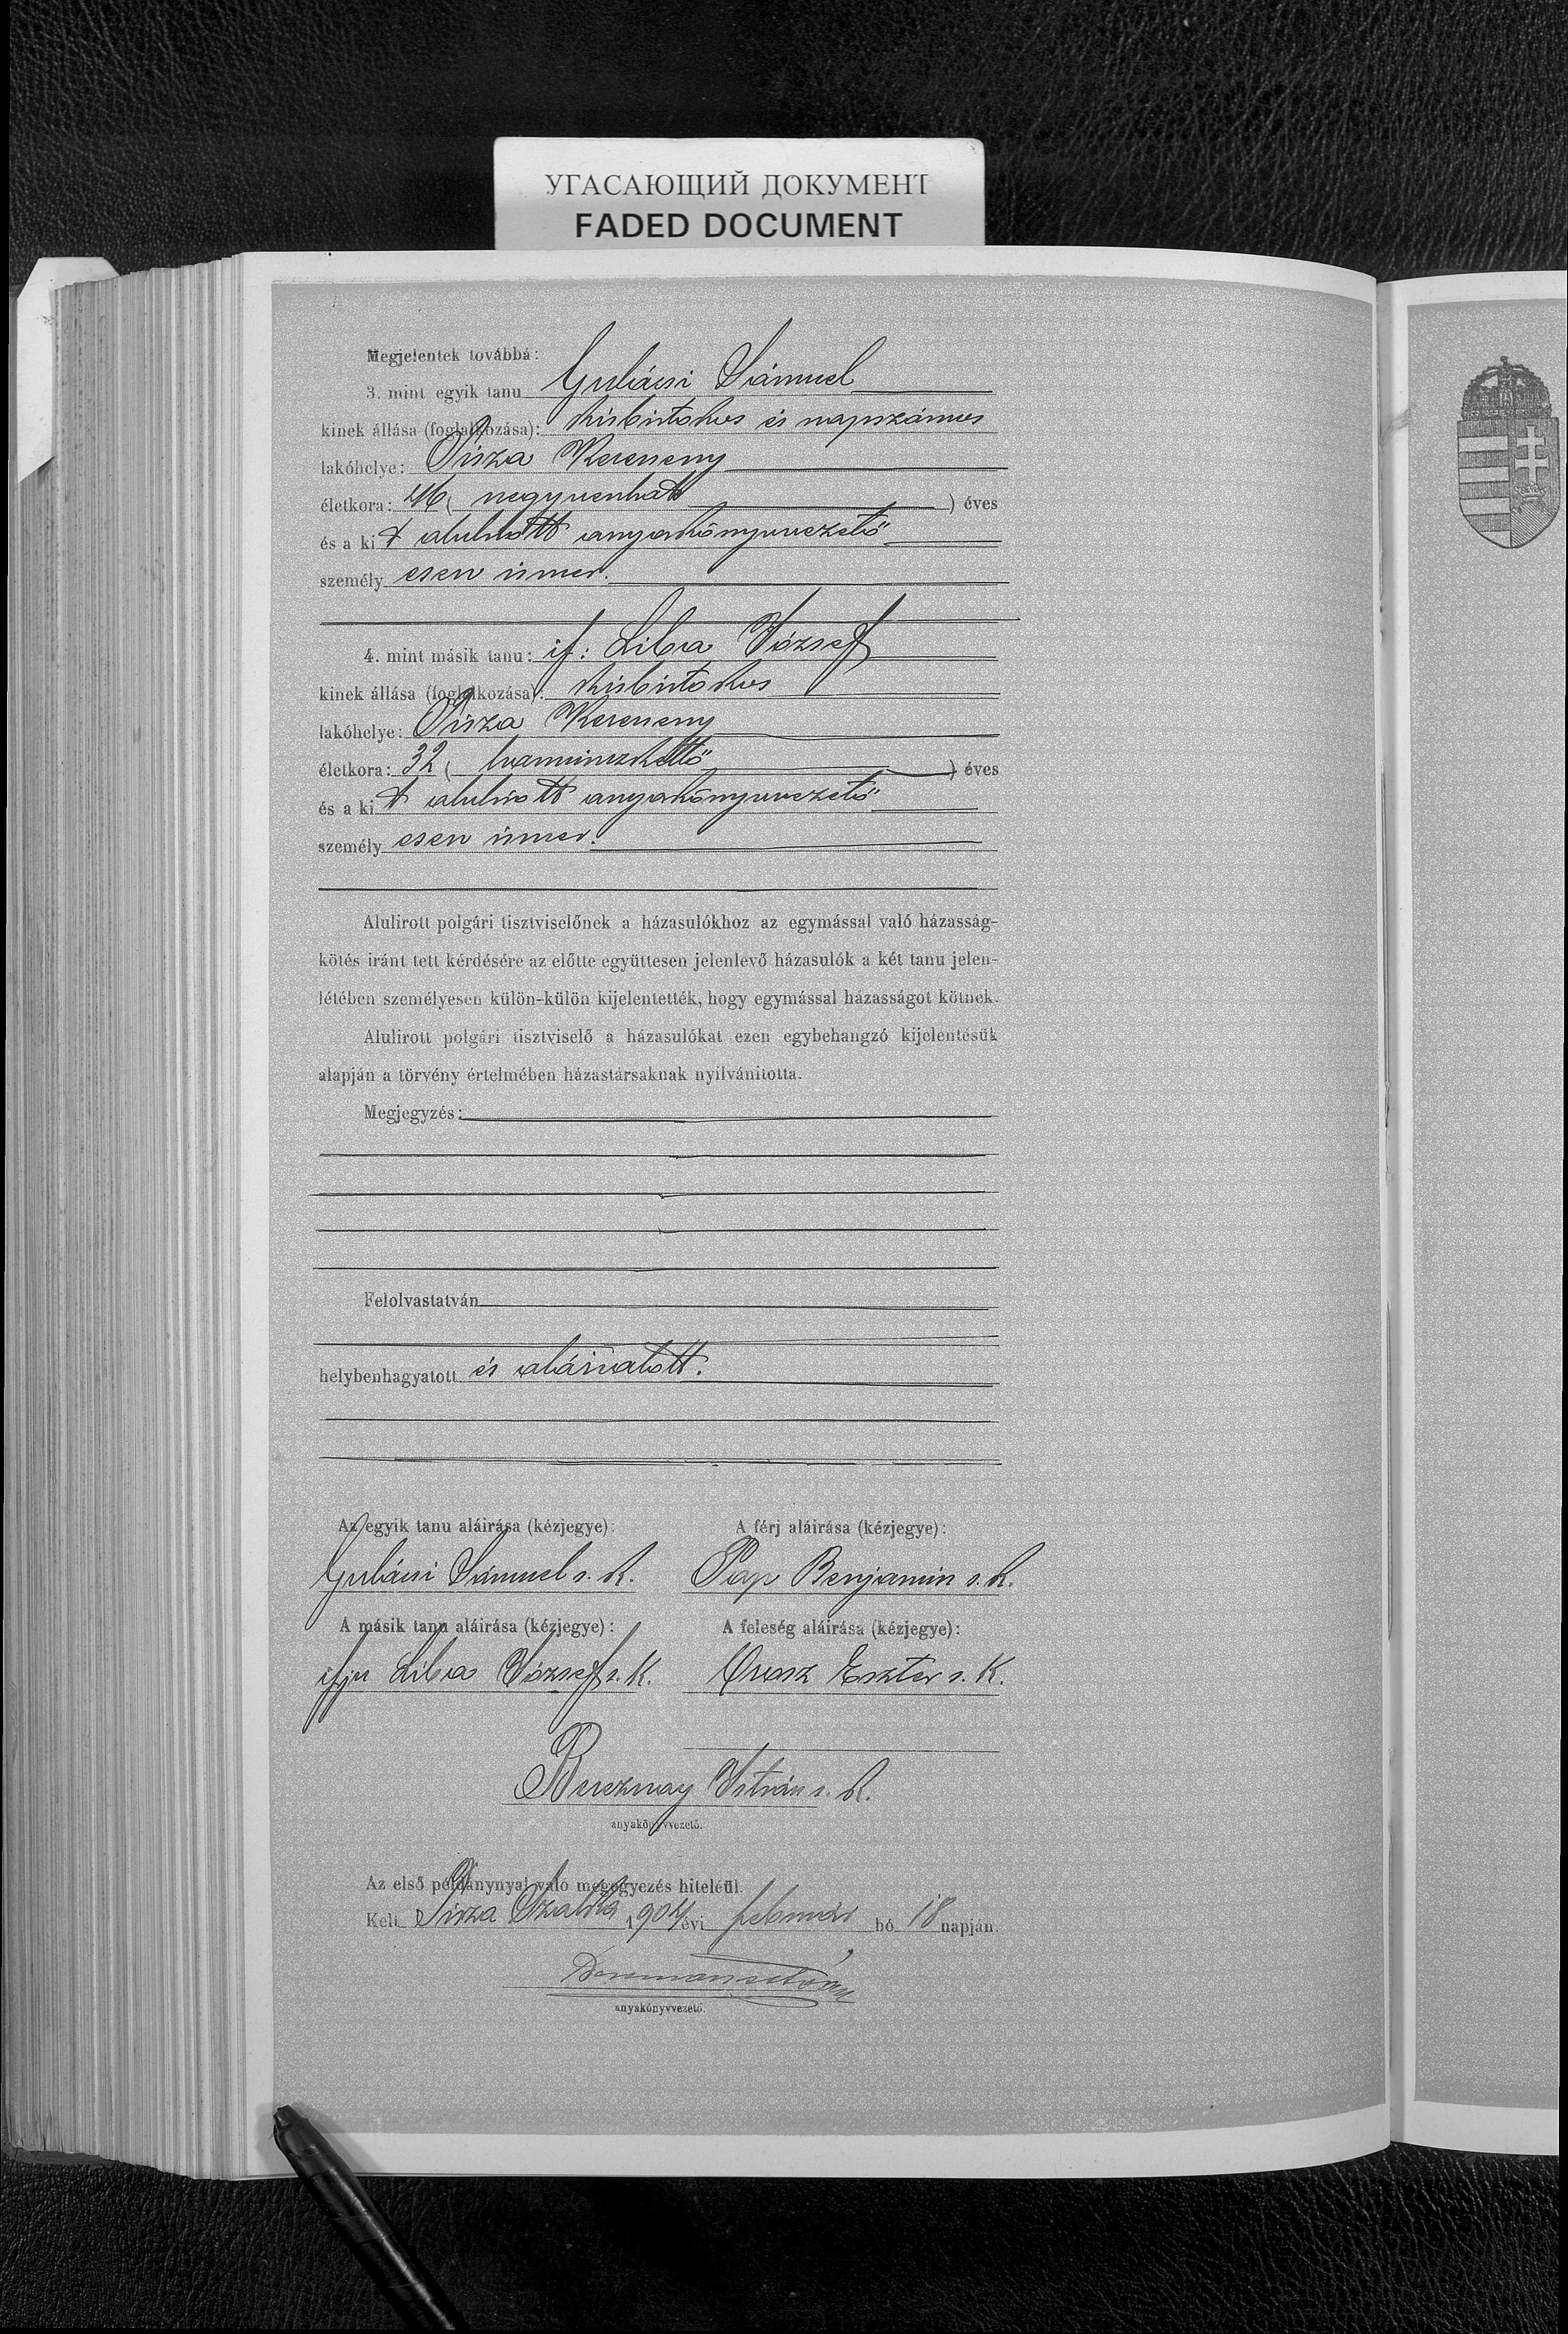 УГАСАЮЩИЙ ДОКУМЕНТ
FADED DOCUMENT
Megjelentek továbbá:
3. mint egyik tanu Gulácsi Sámuel
kinek állása (foglalkozása): kisbirtokos és napszámos
lakóhelye: Tisza Kerecseny
életkora: 46 ( negyvenhat ) éves
és a ki t alulirott anyakönyvvezető
személy esen ismer.
4. mint másik tanu: if: Liba József
kinek állása (foglalkozása): kisbirtokos
lakóhelye: Tisza Kerecseny
életkora: 32 ( harminczkettő ) éves
és a ki t alulirott anyakönyvvezető
személy esen ismer.
Alulirott polgári tisztviselőnek a házasulókhoz az egymással való házasság-
kötés iránt tett kérdésére az előtte együttesen jelenlevő házasulók a két tanu jelen-
létében személyesen külön-külön kijelentették, hogy egymással házasságot kötnek.
Alulirott polgári tisztviselő a házasulókat ezen egybehangzó kijelentésük
alapján a törvény értelmében házastársaknak nyilvánitotta.
Megjegyzés:
Felolvastatván
helybenhagyatott és aláiratott.
Az egyik tanu aláirása (kézjegye): A férj aláirása (kézjegye):
Gulácsi Sámuel s. k. Pap Benjamin s. k.
A másik tanu aláirása (kézjegye): A feleség aláirása (kézjegye):
ifju Liba József s. k. Orosz Eszter s. k.
Bereznay István s. k.
anyakönyvvezető.
Az első példánynyal való megegyezés hiteléül.
Kelt Tisza Szalka 1904 évi február hó 18 napján.
anyakönyvvezető.